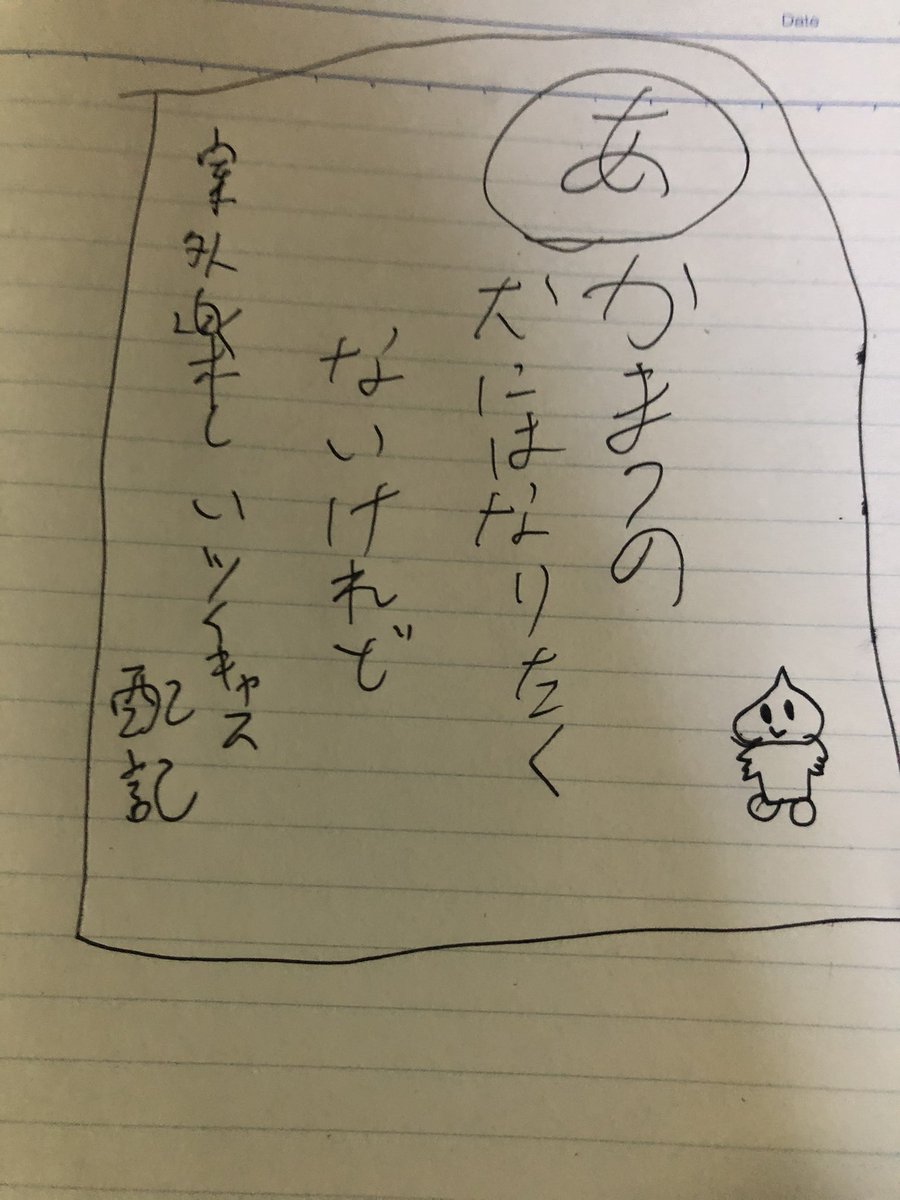 Date
あ
かまつの
だにはなりたく
ないけれど
案外楽しい ツイキャス
配記